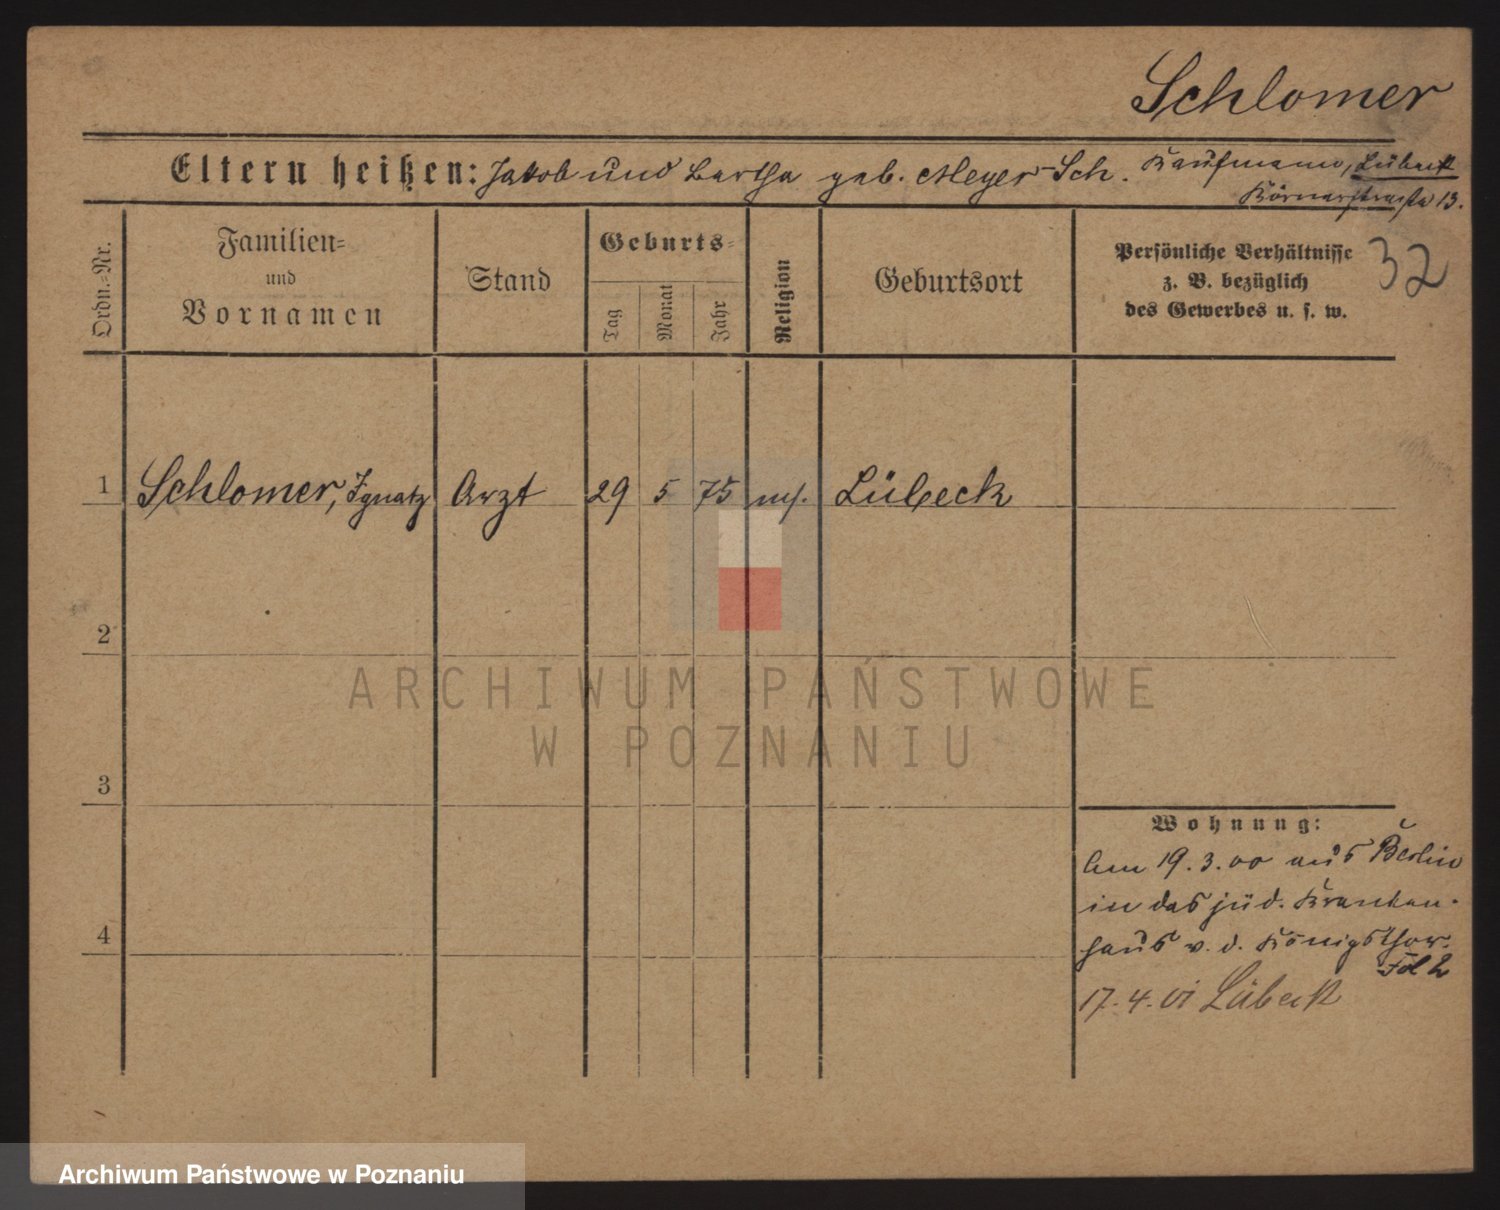 Schlomer
Eltern heißen: Jakob und Bertha geb. Meyer-Sch. Kaufmann, Lübeck
Körnerstraße 13.
Ordn.-Nr.
Familien-
und
Vornamen
Stand
Geburts-
Tag
Monat
Jahr
Religion
Geburtsort
Persönliche Verhältnisse
z. B. bezüglich
des Gewerbes u. s. w.
32
1 Schlomer, Ignatz Arzt 29 5 75 mos. Lübeck
2
3
4
Wohnung:
Am 19.3.00 aus Berlin
in das jüd. Kranken-
haus v. d. Königsthor.
17.4.01 Lübeck
ARCHIWUM PAŃSTWOWE
W POZNANIU
Archiwum Państwowe w Poznaniu